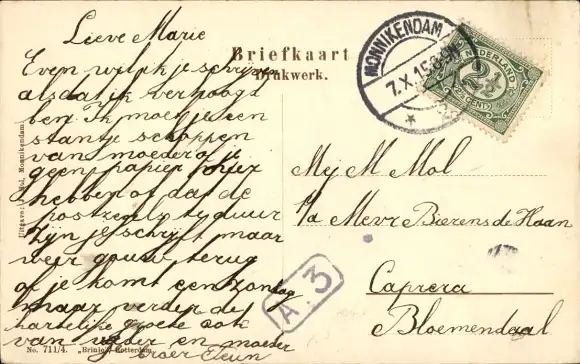 Lieve Marie
Briefkaart
Drukwerk.
Even wil ik je schrijven
als dat ik verhoogd
ben. Ik moet je een
standje schoppen
van moeder of je
geen papier meer
hebben of dat de
postzegels te duur
zijn je schrijft maar
weer gouw terug
of je komt een zondag
maar verder de
hartelijke groete ook
van vader en moeder
je broer Teun
MONNIKENDAM
7.X.15
NEDERLAND
2½
CENT
Mej M Mol
p/a Mevr Bierens de Haan
Caprera
Bloemendaal
A. 3
Monnikendam.
No. 711/4. „Brinio" Rotterdam